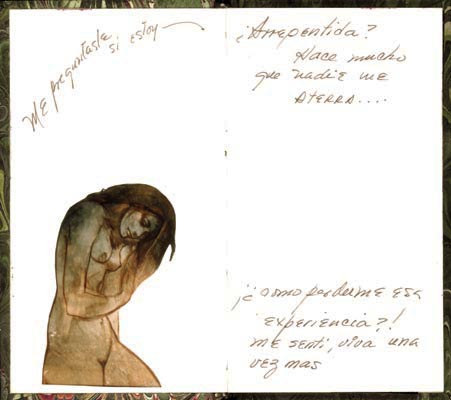 ME preguntaste
si estoy
¿Arrepentida?
Hace mucho
que nadie me
ATERRA....
¡¿como perderme esa
experiencia?!
ME senti, viva una
vez mas